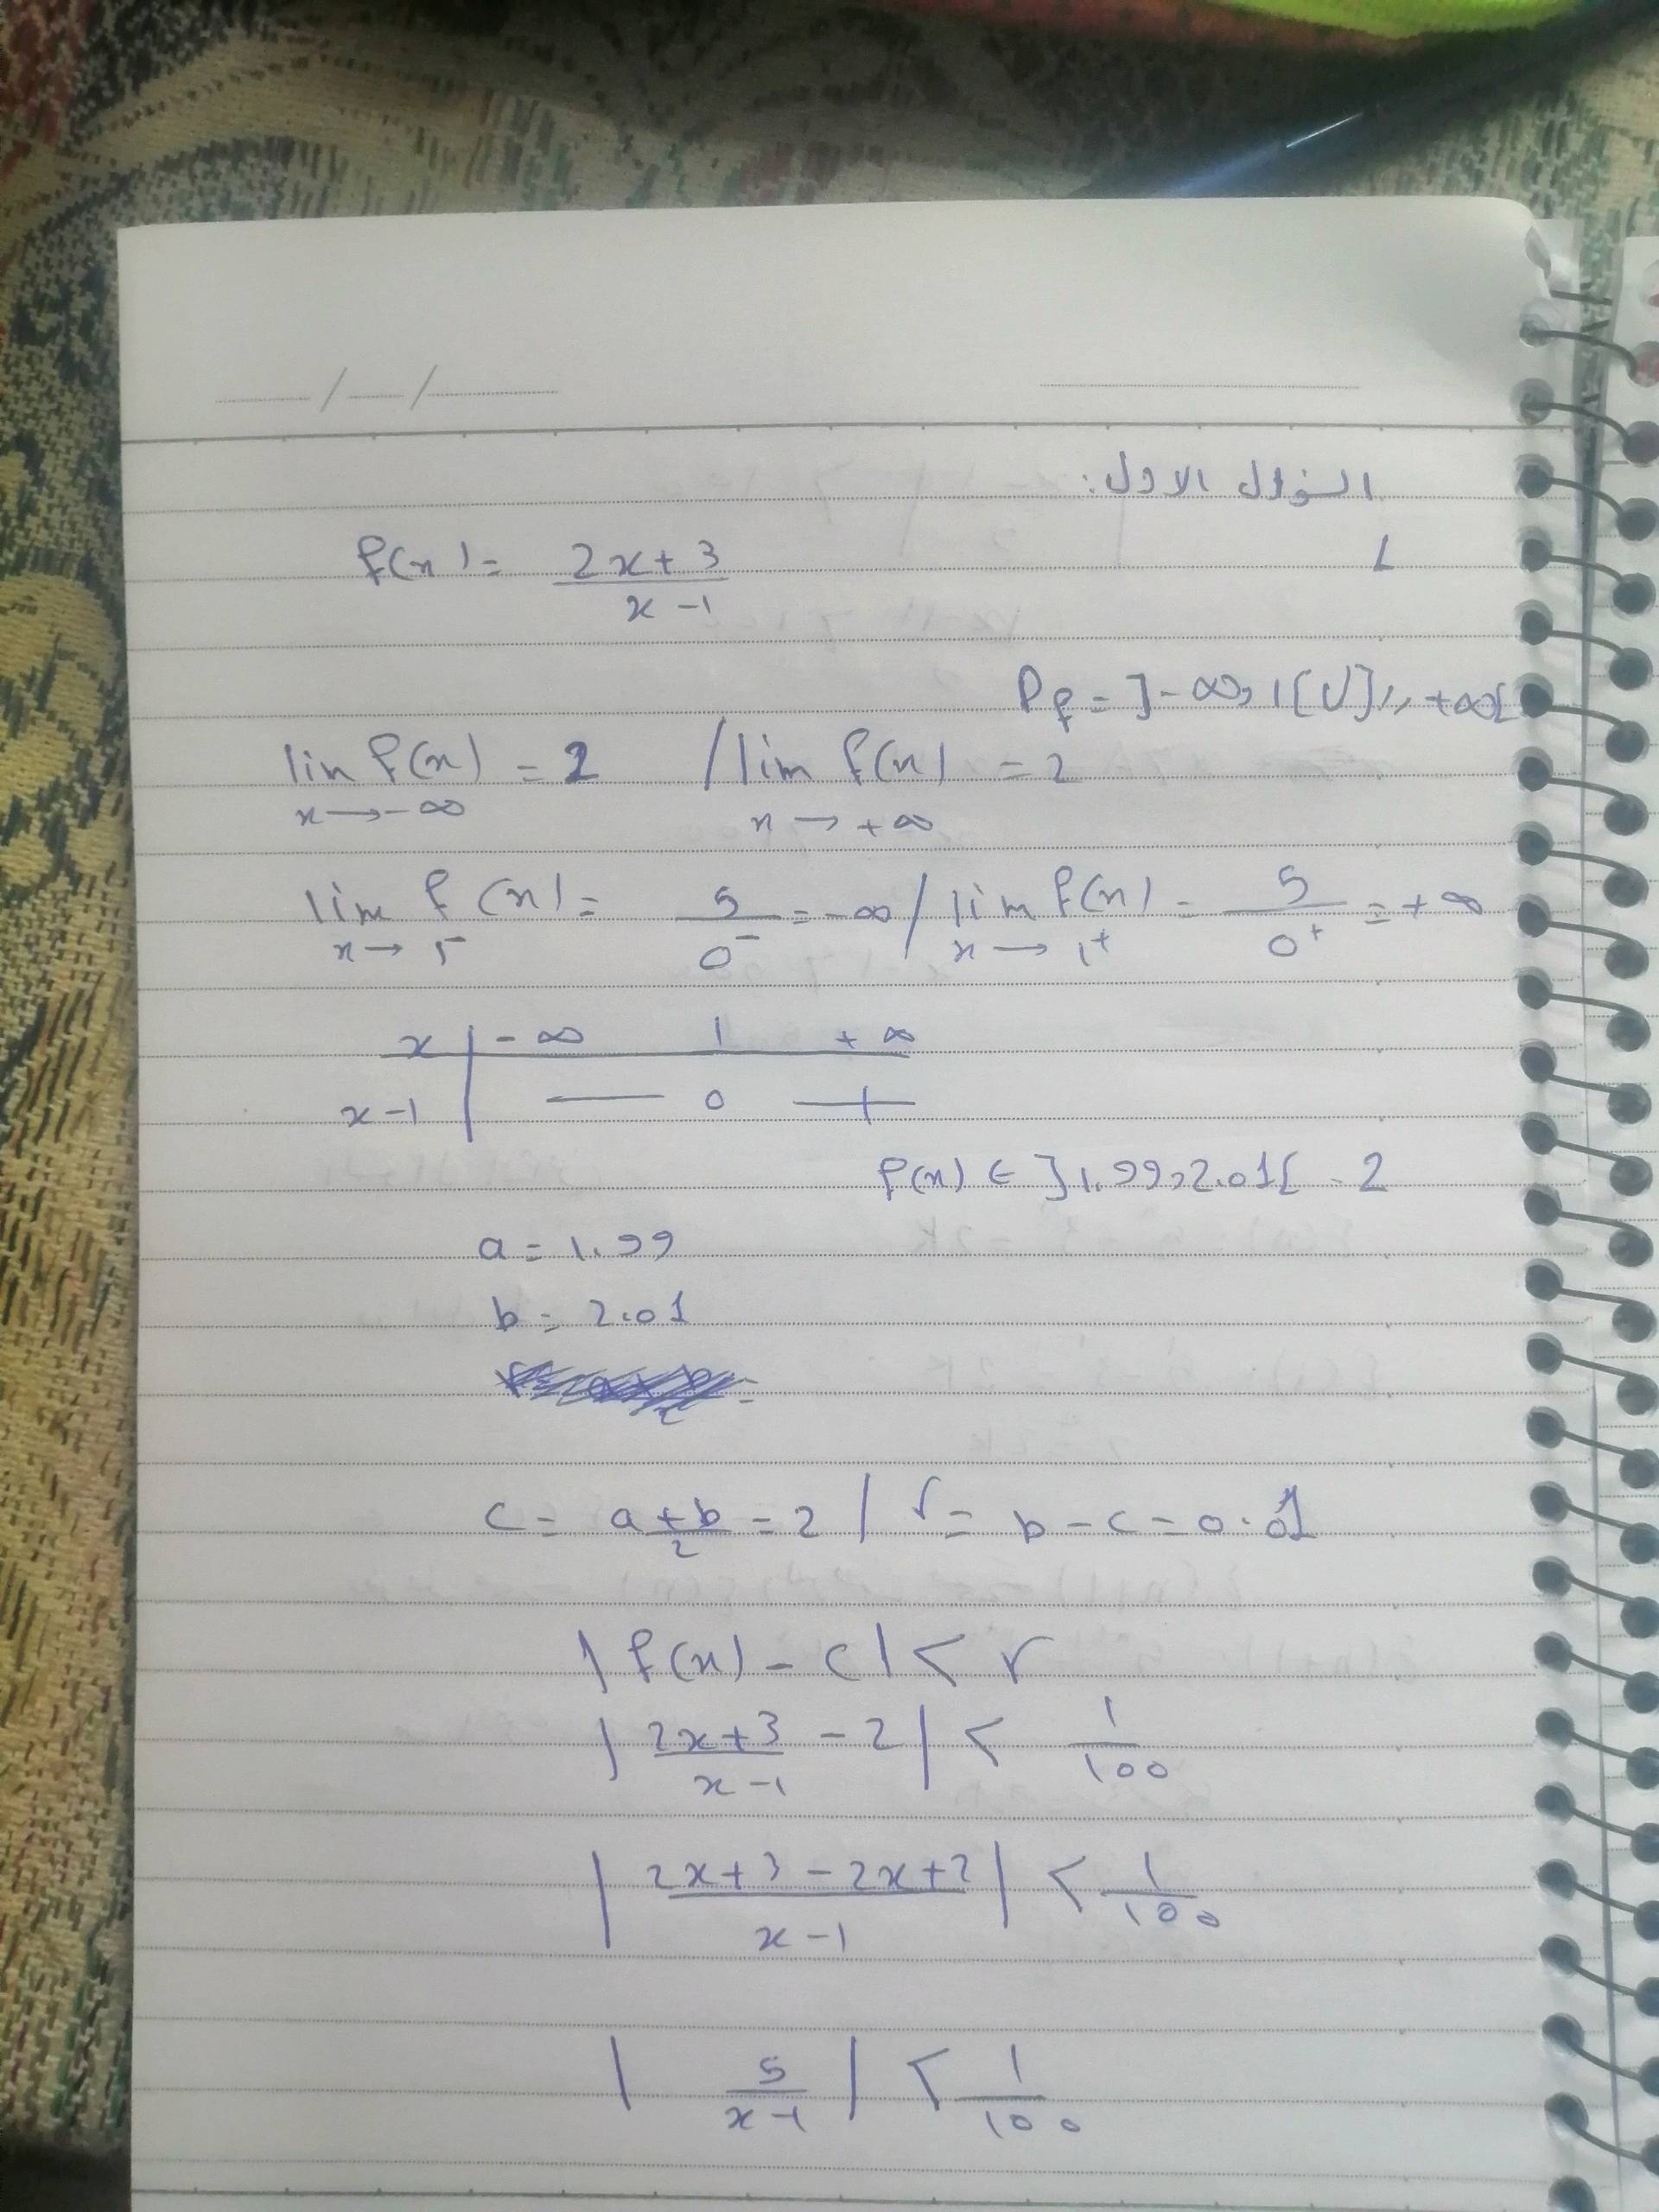 السؤال الاول:
1
f(x) = 2x+3 / x-1
Df = ]-∞, 1[ U ]1, +∞[
lim f(x) = 2 / lim f(x) = 2
x → -∞ x → +∞
lim f(x) = 5/0⁻ = -∞ / lim f(x) = 5/0⁺ = +∞
x → 1⁻ x → 1⁺
x | -∞ 1 +∞
x-1 | — 0 +
f(x) ∈ ]1.99, 2.01[ . 2
a = 1.99
b = 2.01
c = a+b/2 = 2 / r = b - c = 0.01
|f(x) - c| < r
|2x+3/x-1 - 2| < 1/100
|2x+3-2x+2/x-1| < 1/100
|5/x-1| < 1/100